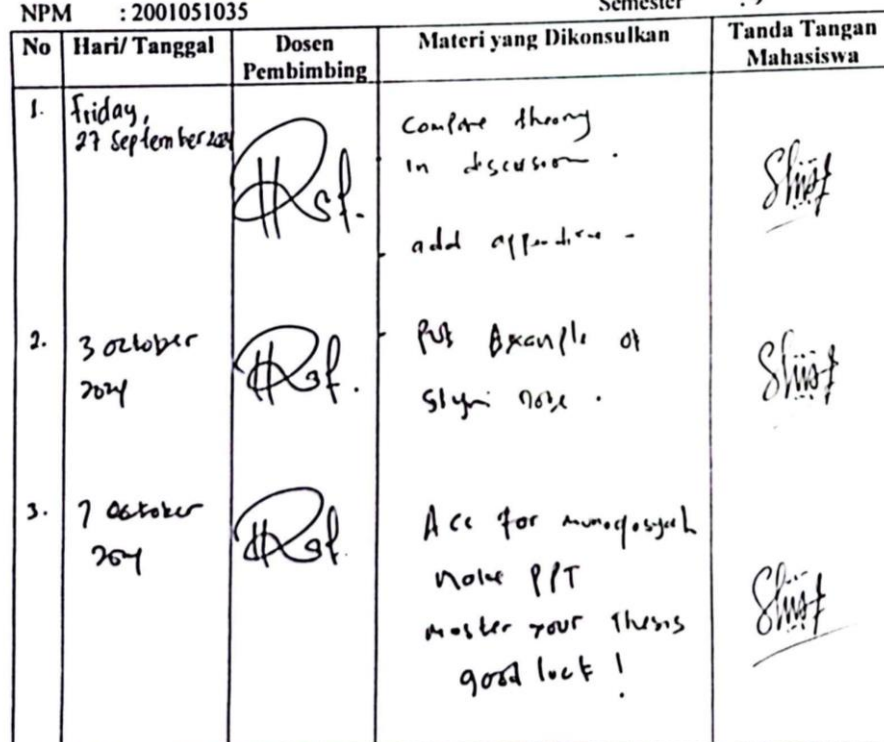 NPM : 2001051035
Semester :
No Hari/ Tanggal Dosen Pembimbing Materi yang Dikonsulkan Tanda Tangan Mahasiswa
1. Friday,
27 September 2024
Compare theory
in discussion.
- add appendixe -
2. 3 October
2024
- Put Example of
note.
3. 7 October
2024
Acc for munaqosyah
make PPT
master your thesis
good luck!